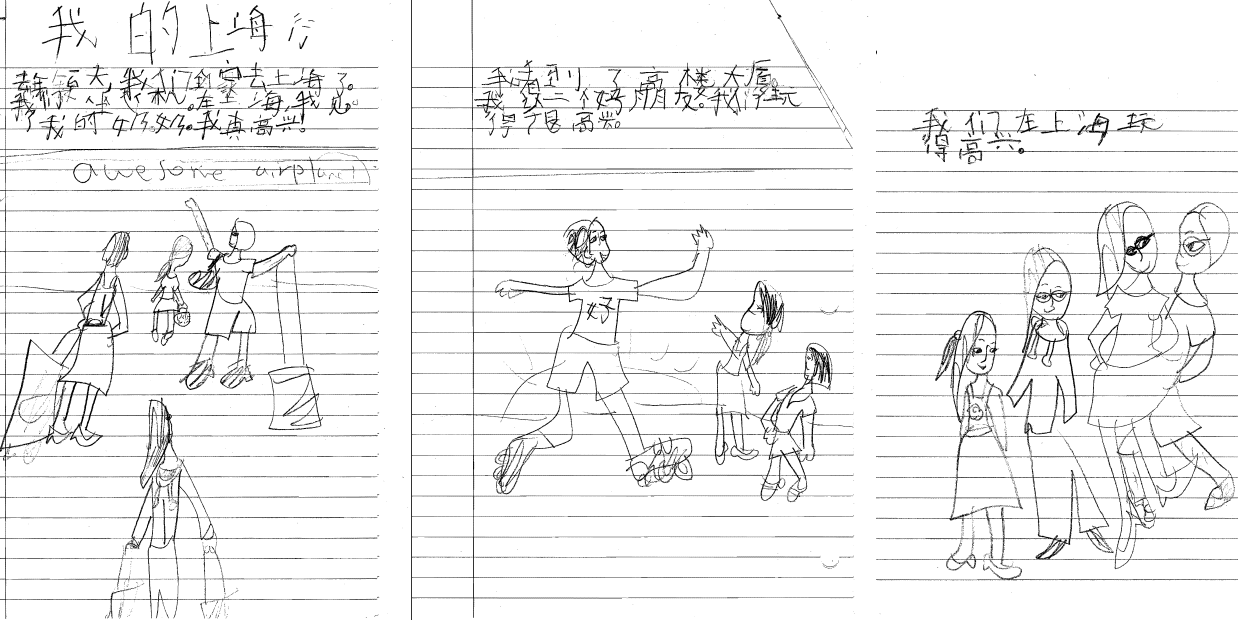 我的上海行
天,我们全家去上海了。
我们坐飞机。在上海,我见
了我的奶奶。我真高兴!
awesome airplane
我看到了高楼大厦。
我交二个好朋友。我们玩
得了很高兴。
好
我们在上海玩
得高兴。